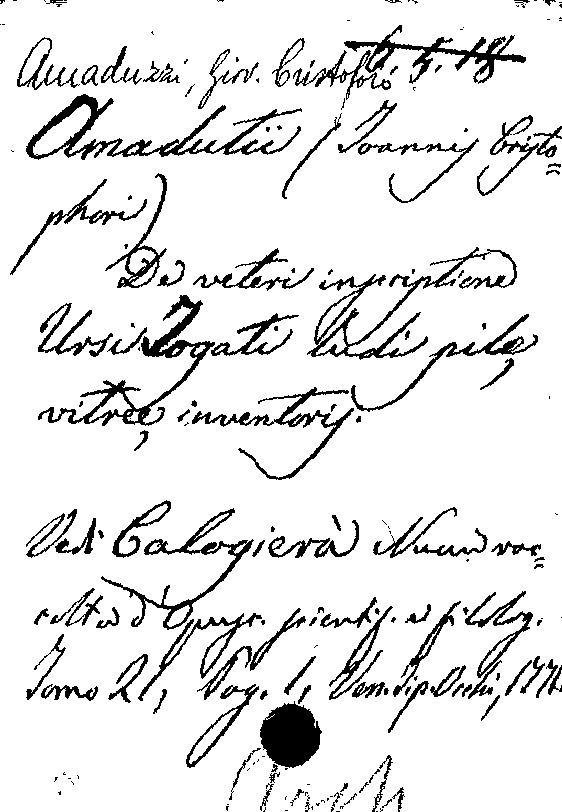 Amaduzzi, Giov. Cristoforo 6. 5. 18
Amadutii (Joannis Cristo=
phori)
De veteri inscriptione
Ursi Togati ludi pilę
vitreę inventoris.
Vedi Calogierà Nuova rac=
colta d'Opusc. scientif. e filolog.
Tomo 21, Pag. 1, Ven. Tip. Occhi, 177